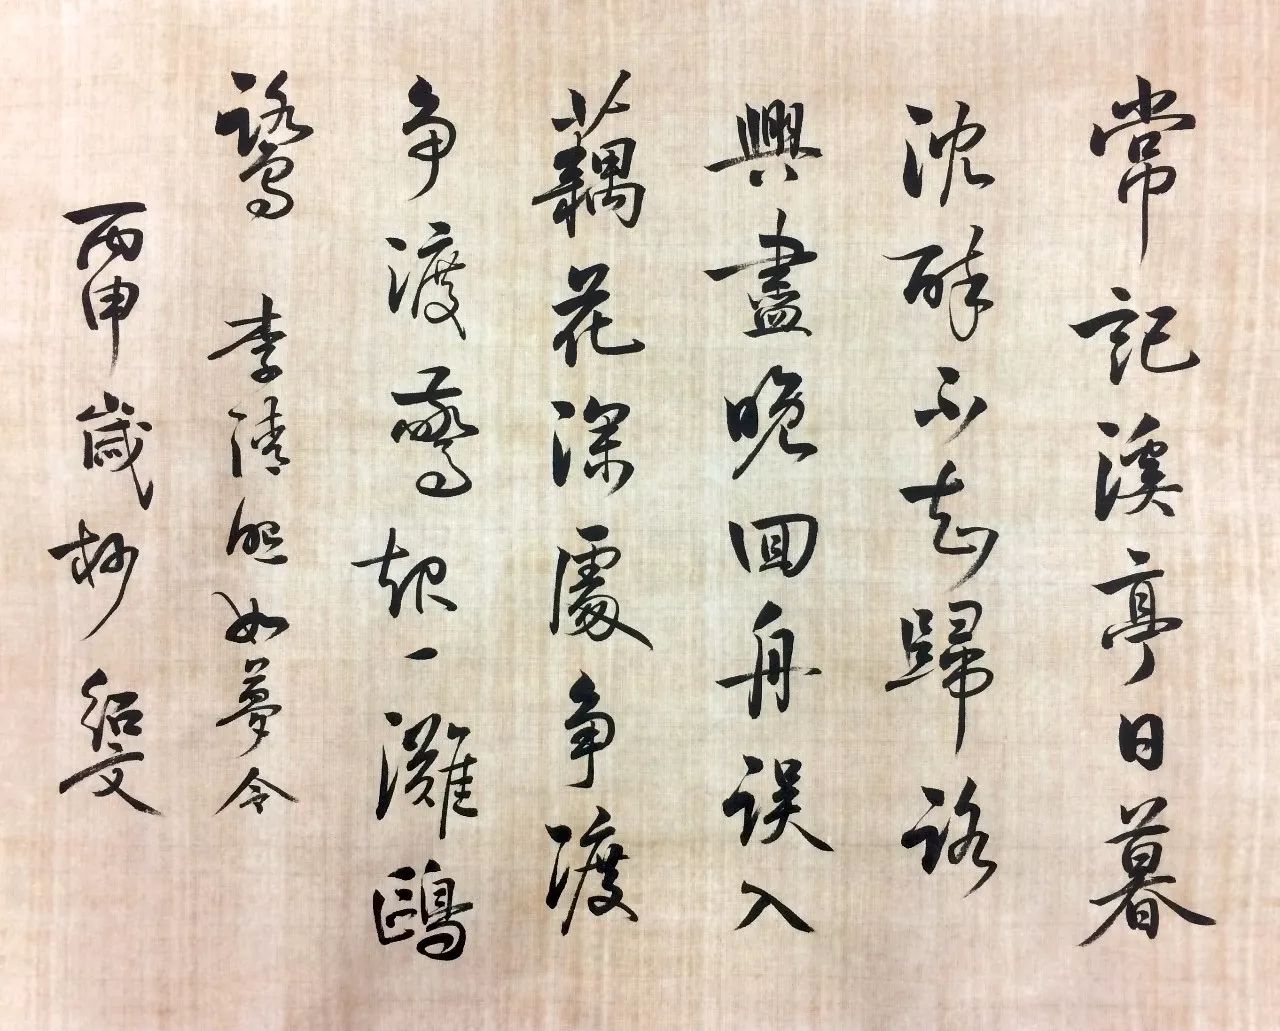 常記溪亭日暮
沈醉不知歸路
興盡晚回舟誤入
藕花深處争渡
争渡驚起一灘鷗
鷺 李清照如夢令
丙申歲抄 紹文